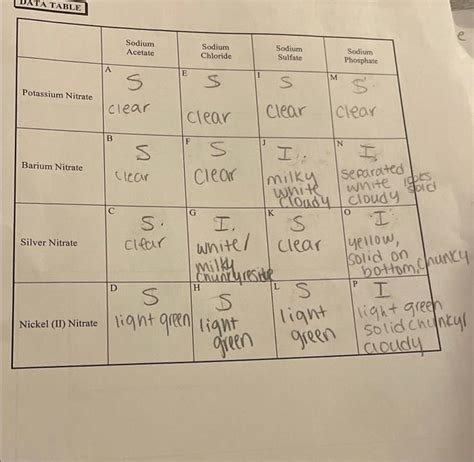 DATA TABLE
e
Sodium Acetate
Sodium Chloride
Sodium Sulfate
Sodium Phosphate
Potassium Nitrate
A
S
clear
E
S
clear
I
S
clear
M
S
clear
Barium Nitrate
B
S
clear
F
S
clear
J
I.
milky
white
cloudy
N
I
separated
white looks
cloudy solid
Silver Nitrate
C
S.
clear
G
I.
white/
milky
chunky
K
S
clear
O
I
yellow,
solid on
bottom, chunky
Nickel (II) Nitrate
D
S
light green
H
S
light
green
L
S
light
green
P
I
light green
solid chunky/
cloudy